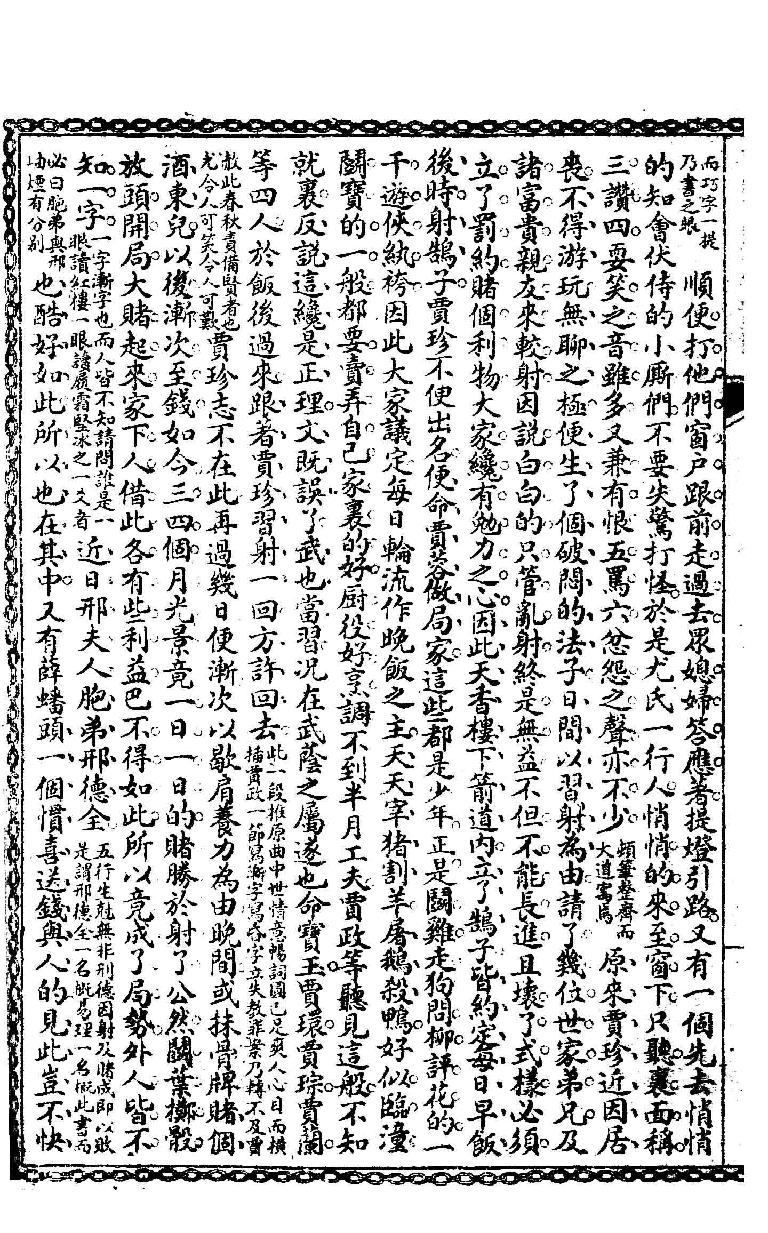 而巧字一提乃書之眼　順便打他們窗户跟前走過去眾媳婦答應著提燈引路又有一個先去悄悄
的知會伏侍的小厮們不要失驚打怪於是尤氏一行人悄悄的來至窗下只聽裏面稱
三讚四耍笑之音雖多又兼有恨五罵六忿怨之聲亦不少　原來賈珍近因居
喪不得游玩無聊之極便生了個破悶的法子日間以習射為由請了幾位世家弟兄及
諸富貴親友來較射因説白白的只管亂射終是無益不但不能長進且壞了式樣必須
立了罰約賭個利物大家纔有勉力之心因此天香樓下箭道内立了鵠子皆約定每日早飯
後時射鵠子賈珍不便出名便命賈蓉做局家這些都是少年正是鬪雞走狗問柳評花的一
干遊俠紈袴因此大家議定每日輪流作晚飯之主天天宰猪割羊屠鵝殺鴨好似臨潼
鬪寶的一般都要賣弄自己家裏的好厨役好烹調不到半月工夫賈政等聽見這般不知
就裏反説這纔是正理文既誤了武也當習况在武蔭之屬遂也命寶玉賈環賈琮賈蘭
等四人於飯後過來跟著賈珍習射一回方許回去此一段推原曲中世情
敖此春秋責備賢者也　令人可笑令人可歎賈珍志不在此再過幾日便漸次以歇肩養力為由晚間或抹骨牌賭個
酒東兒以後漸次至錢如今三四個月光景竟一日一日的賭勝於射了公然鬪葉擲骰
放頭開局大賭起來家下人借此各有些利益巴不得如此所以竟成了局勢外人皆不
知一字一字漸字也而人皆不知請問誰是一眼讀紅樓一眼諸履霜堅冰之一爻者　近日邢夫人胞弟邢德全五行生尅無非刑德因射及賭成即以敗是謂邢德全一名概易理一名概此書而
必曰胞弟與邢岫煙有分别　也酷好如此所以也在其中又有薛蟠頭一個慣喜送錢與人的見此豈不快